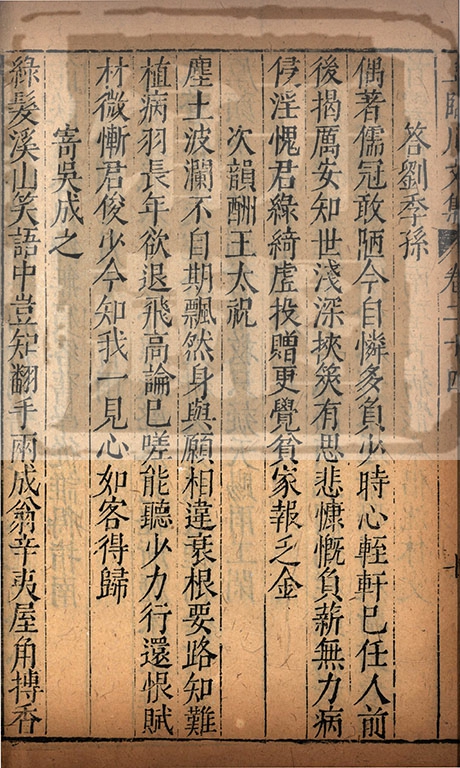 王臨川文集 卷二十四
答劉季孫
偶著儒冠敢陋今自憐多負少時心輊軒已任人前
後揭厲安知世淺深挾筴有思悲慷慨負薪無力病
侵淫愧君綠綺虛投贈更覺貧家報乏金
次韻酬王太祝
塵土波瀾不自期飄然身與願相違衰根要路知難
植病羽長年欲退飛高論已嗟能聽少力行還恨賦
材微慚君俊少今知我一見心如客得歸
寄吳成之
綠髮溪山笑語中豈知翻手兩成翁辛夷屋角摶香